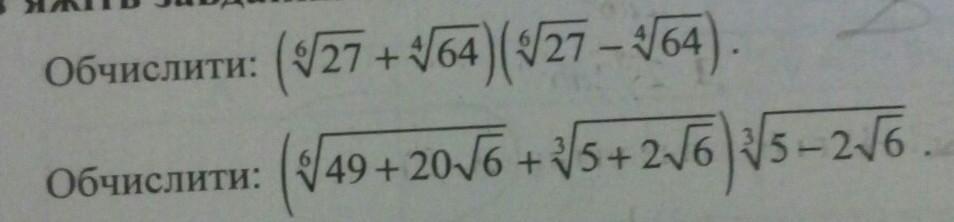 Обчислити: (⁶√27 + ⁴√64)(⁶√27 − ⁴√64).
Обчислити: (⁶√(49 + 20√6) + ³√(5 + 2√6)) ³√(5 − 2√6).